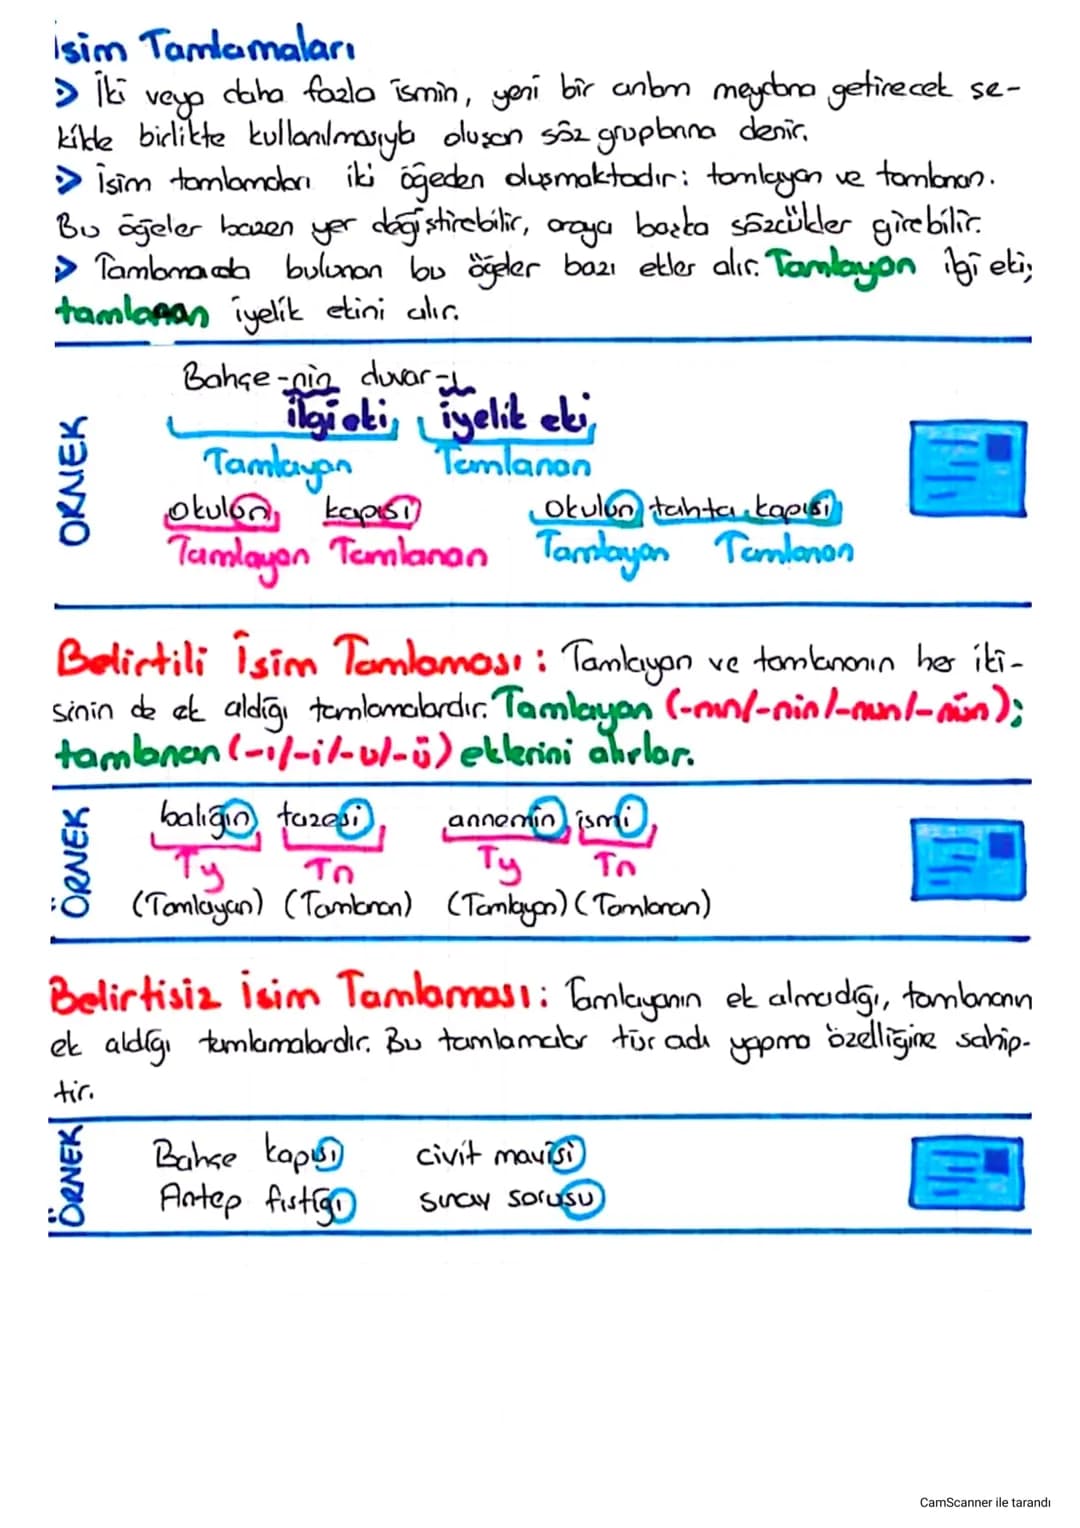 İsim Tamlamaları
> İki veya daha fazla ismin, yeni bir anlam meydana getirecek şe-
kilde birlikte kullanılmasıyla oluşan söz gruplarına denir.
> İsim tamlamaları iki öğeden oluşmaktadır: tamlayan ve tamlanan.
Bu öğeler bazen yer değiştirebilir, araya başka sözcükler girebilir.
> Tamlamada bulunan bu öğeler bazı ekler alır. Tamlayan ilgi eki;
tamlanan iyelik ekini alır.
ÖRNEK
Bahçe-nin duvar-ı
ilgi eki iyelik eki
Tamlayan Tamlanan
okulun kapısı okulun tahta kapısı
Tamlayan Tamlanan Tamlayan Tamlanan
Belirtili İsim Tamlaması: Tamlayan ve tamlananın her iki-
sinin de ek aldığı tamlamalardır. Tamlayan (-nın/-nin/-nun/-nün);
tamlanan (-ı/-i/-u/-ü) eklerini alırlar.
ÖRNEK
balığın tazesi annemin ismi
Ty Tn Ty Tn
(Tamlayan) (Tamlanan) (Tamlayan) (Tamlanan)
Belirtisiz İsim Tamlaması: Tamlayanın ek almadığı, tamlananın
ek aldığı tamlamalardır. Bu tamlamalar tür adı yapma özelliğine sahip-
tir.
ÖRNEK
Bahçe kapısı civit mavisi
Antep fıstığı sınav sorusu
CamScanner ile tarandı